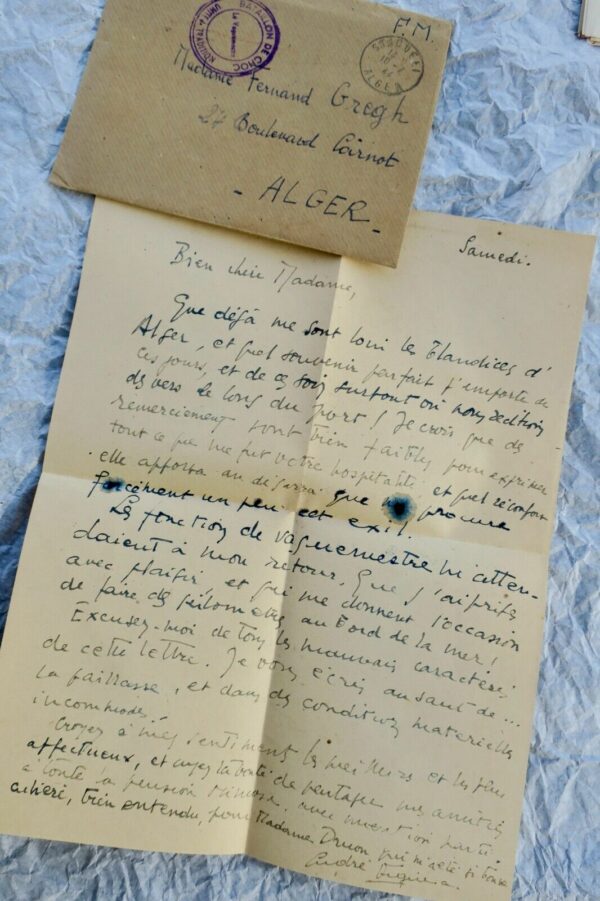 BATAILLON DE CHOC
Le Vaguemestre
F.M.
ALGER
Madame Fernand Gregh
27 Boulevard Carnot
- ALGER -
Samedi.
Bien chère Madame,
Que déjà me sont loin les blandices d'
Alger, et quel souvenir parfait j'emporte de
ces jours, et de ces soirs surtout où nous récitions
des vers le long du port ! Je crois que des
remerciement sont bien faibles pour exprimer
tout ce que me fut votre hospitalité, et quel réconfort
elle apporta au que procure
forcément un peu cet exil.
Les fonction de vaguemestre m'atten-
daient à mon retour, que j'ai prises
avec plaisir, et qui me donnent l'occasion
de faire des kilomètres au bord de la mer !
Excusez-moi de tous les mauvais caractères
de cette lettre. Je vous écris au saut de ...
la paillasse, et dans des conditions matérielles
incommodes.
Croyez à mes sentiments les meilleurs et les plus
affectueux, et ayez la bonté de partager mes amitiés
à toute la pension Mimosa, avec mention parti-
culière, bien entendu, pour Madame Druon qui m'a été si bonne
André